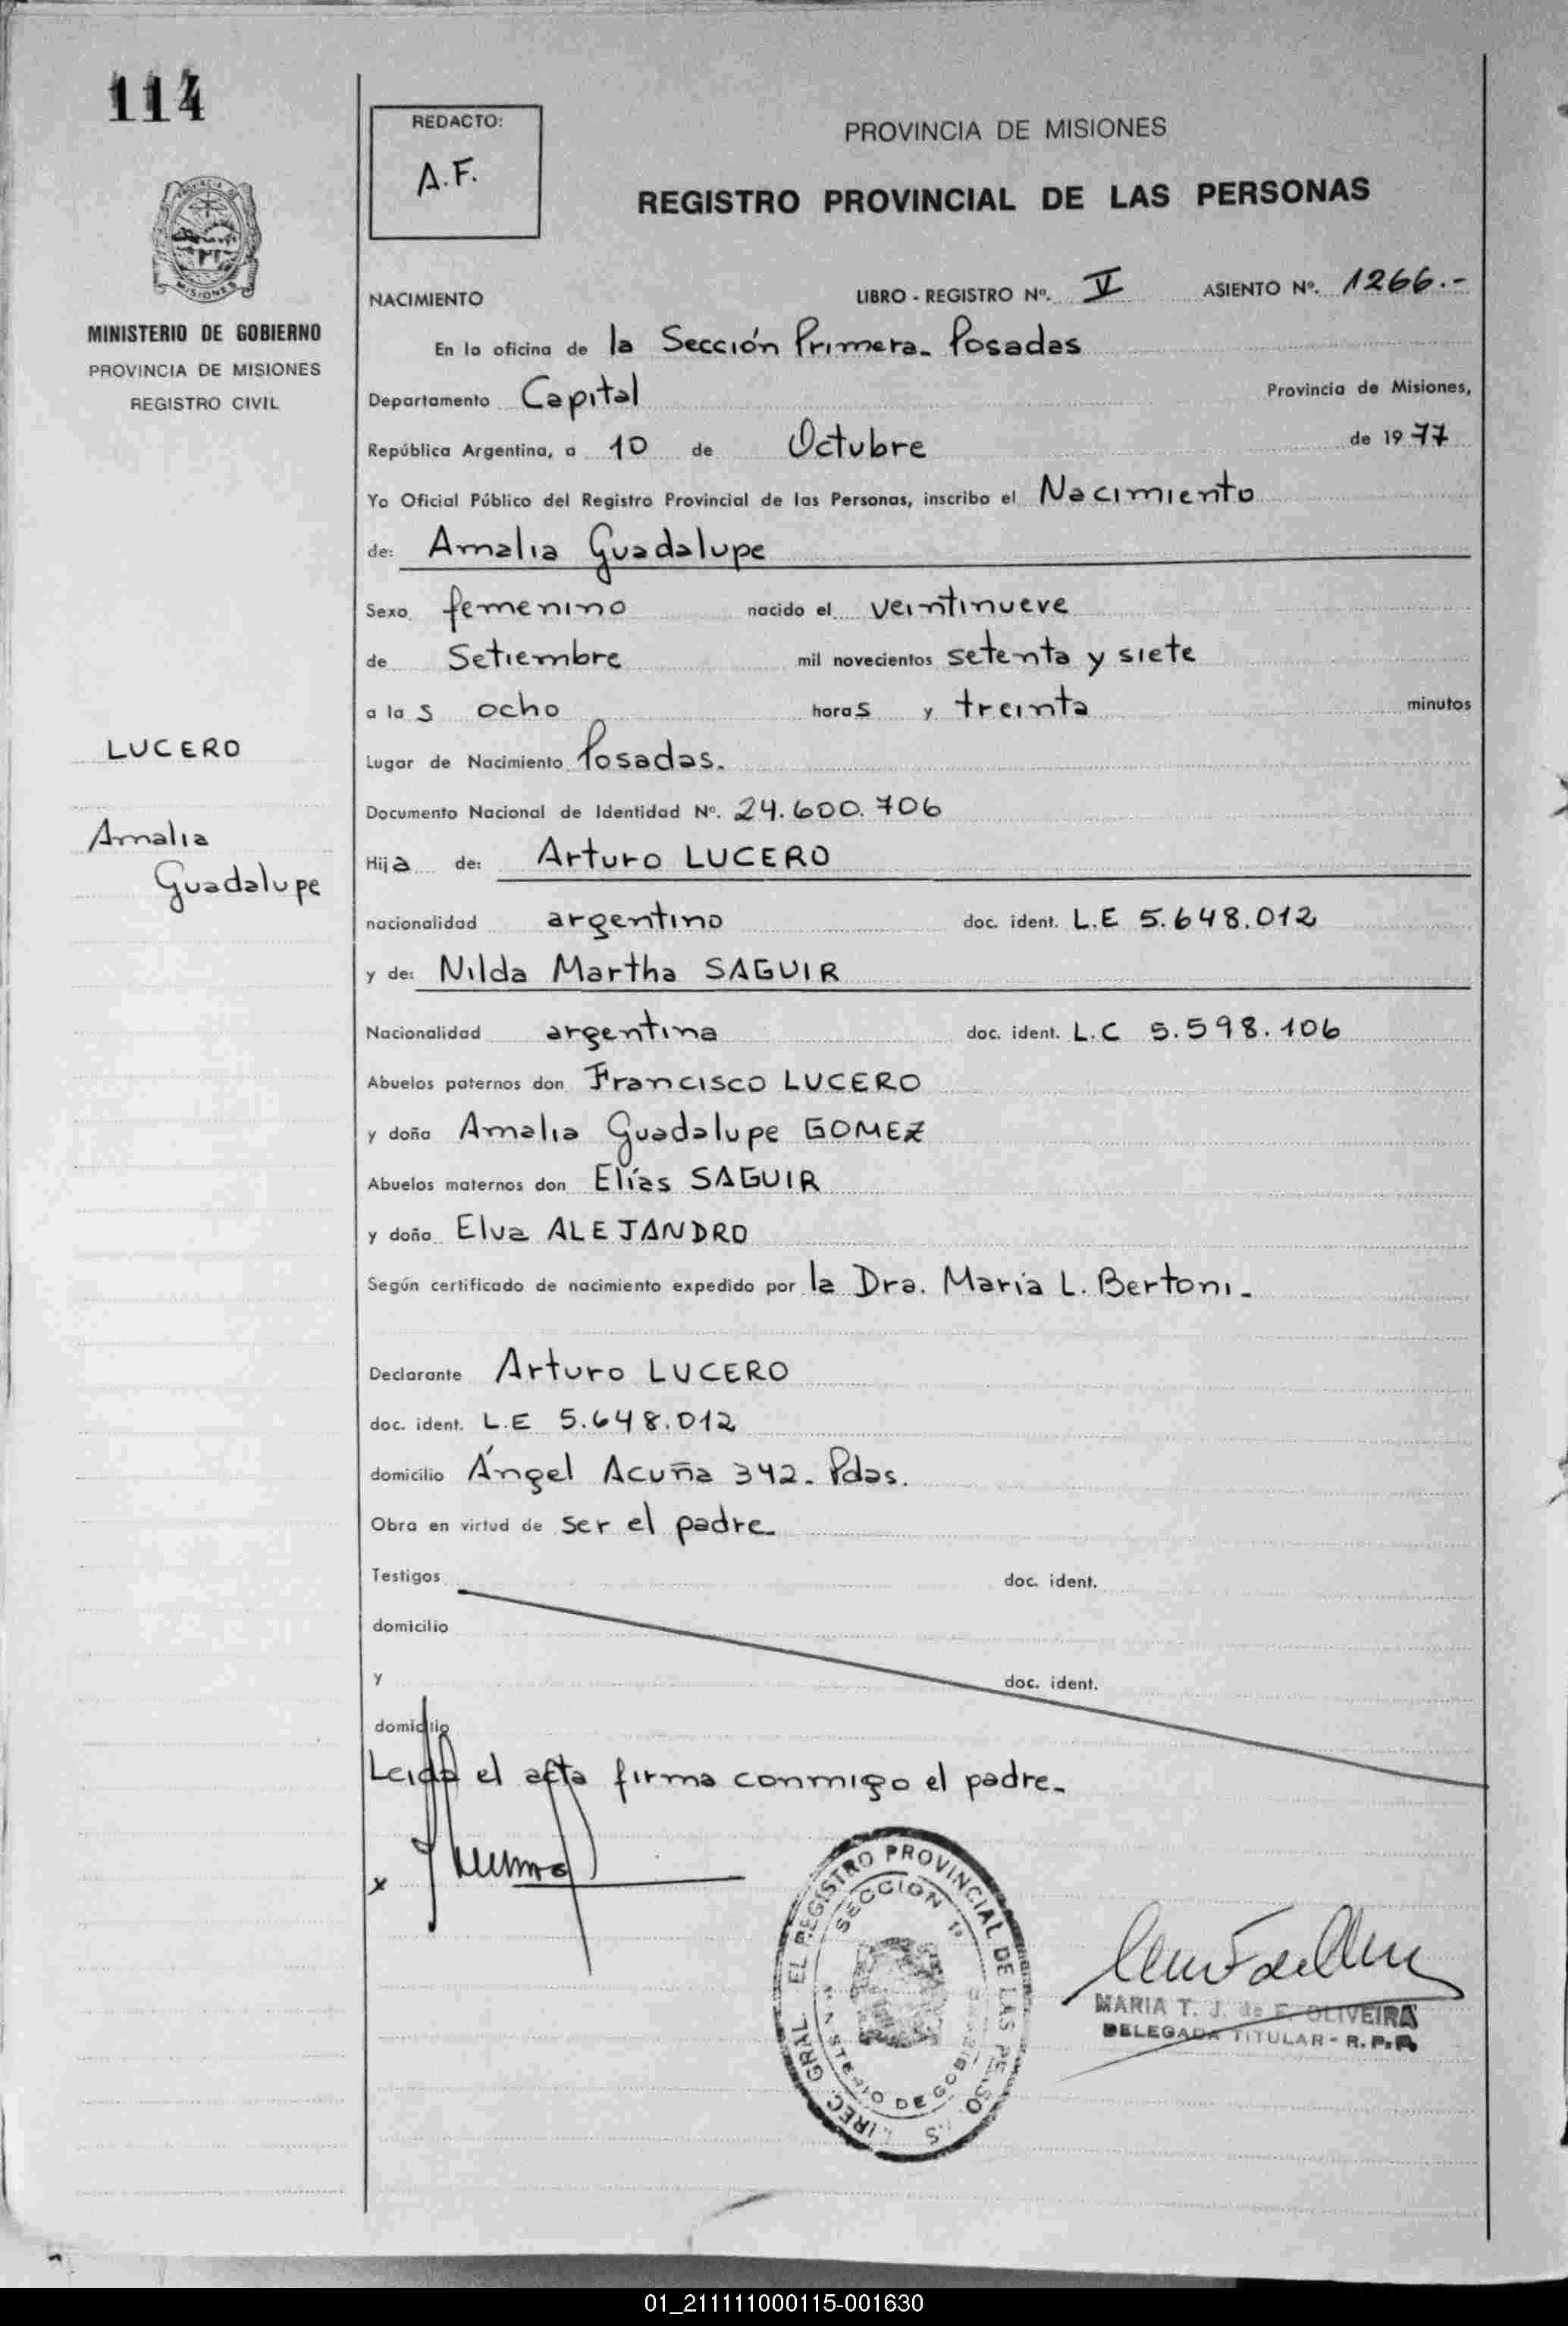 114
REDACTO:
A.F.
PROVINCIA DE MISIONES
REGISTRO PROVINCIAL DE LAS PERSONAS
MISIONES
MINISTERIO DE GOBIERNO
PROVINCIA DE MISIONES
REGISTRO CIVIL
NACIMIENTO LIBRO - REGISTRO Nº. V ASIENTO Nº. 1266.-
En la oficina de la Sección Primera. Posadas
Departamento Capital Provincia de Misiones,
República Argentina, a 10 de Octubre de 1977
Yo Oficial Público del Registro Provincial de las Personas, inscribo el Nacimiento
de: Amalia Guadalupe
Sexo femenino nacido el veintinueve
de Setiembre mil novecientos setenta y siete
a las ocho horas y treinta minutos
LUCERO
Amalia
Guadalupe
Lugar de Nacimiento Posadas.
Documento Nacional de Identidad Nº. 24.600.706
Hija de: Arturo LUCERO
nacionalidad argentino doc. ident. L.E 5.648.012
y de: Nilda Martha SAGUIR
Nacionalidad argentina doc. ident. L.C 5.598.106
Abuelos paternos don Francisco LUCERO
y doña Amalia Guadalupe GOMEZ
Abuelos maternos don Elías SAGUIR
y doña Elva ALEJANDRO
Según certificado de nacimiento expedido por la Dra. María L. Bertoni.
Declarante Arturo LUCERO
doc. ident. L.E 5.648.012
domicilio Ángel Acuña 342. Pdas.
Obra en virtud de ser el padre.
Testigos doc. ident.
domicilio
y doc. ident.
domicilio
Leida el acta firma conmigo el padre.
x
EL REGISTRO PROVINCIAL DE LAS
SECCION 1ª
DE
MARIA T. J. de F. OLIVEIRA
DELEGADA TITULAR - R.P.P.
01_211111000115-001630